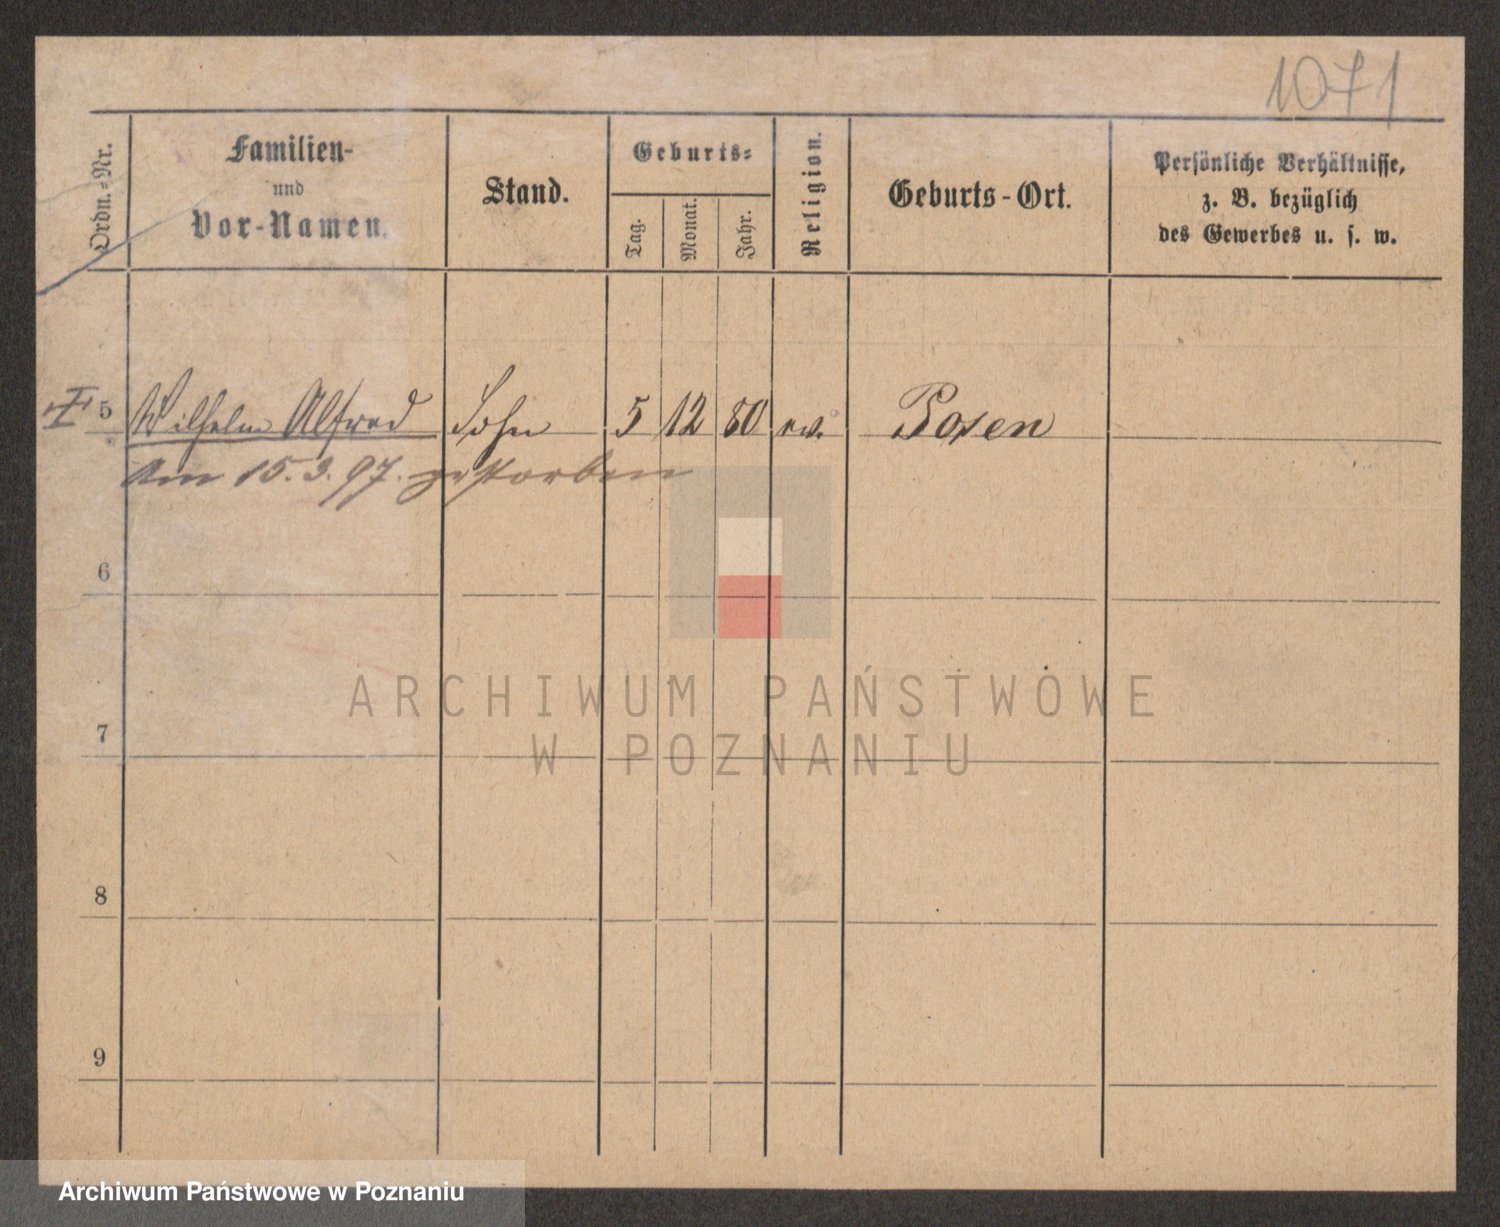 1071
Ordn.-Nr.
Familien-
und
Vor-Namen.
Stand.
Geburts-
Tag.
Monat.
Jahr.
Religion.
Geburts-Ort.
Persönliche Verhältnisse,
z. B. bezüglich
des Gewerbes u. s. w.
5 Wilhelm Alfred Sohn 5 12 80 ev. Posen
Am 15.3.97. gestorben
6
7
8
9
ARCHIWUM PAŃSTWOWE
W POZNANIU
Archiwum Państwowe w Poznaniu